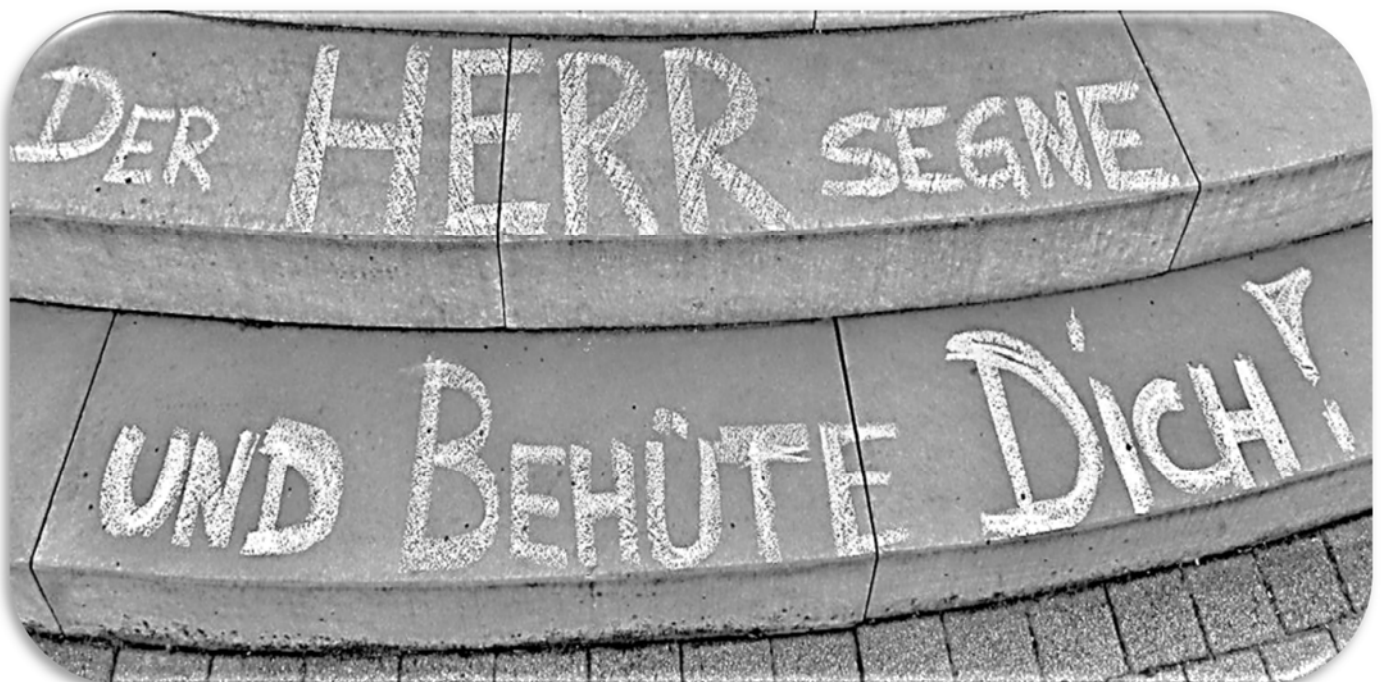 DER HERR SEGNE
UND BEHÜTE DiCH!